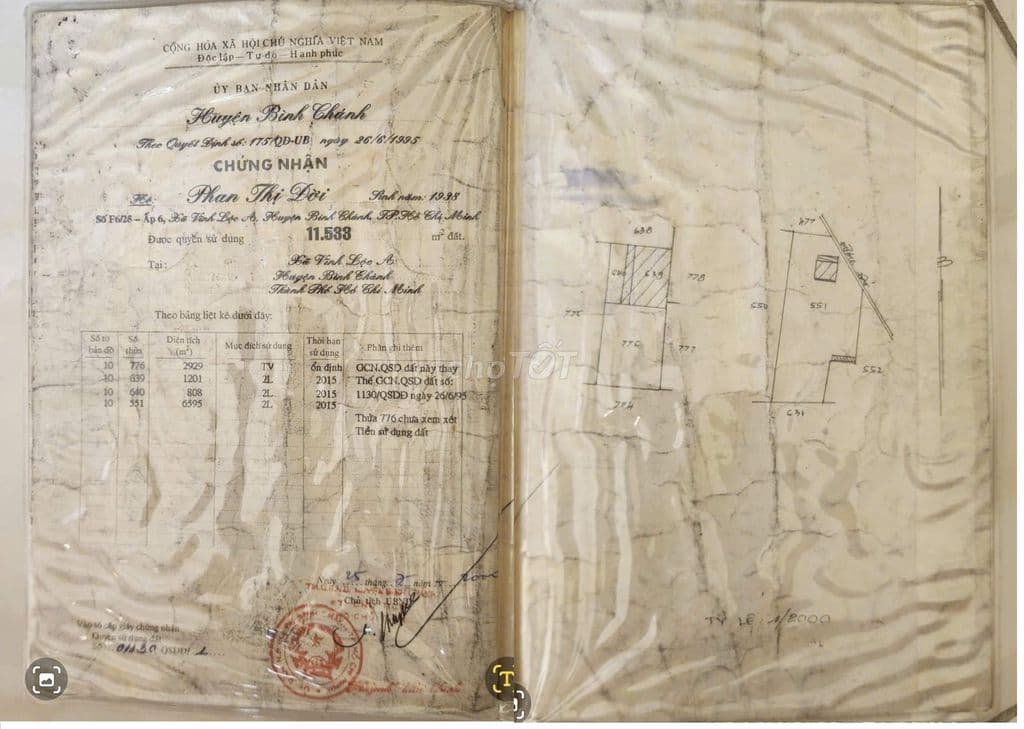 CỘNG HÒA XÃ HỘI CHỦ NGHĨA VIỆT NAM
Độc lập - Tự do - Hạnh phúc
ỦY BAN NHÂN DÂN
Huyện Bình Chánh
Theo Quyết Định số: 175/QĐ-UB ngày 26/6/1995
CHỨNG NHẬN
Hộ: Phan Thị Dời Sinh năm: 1938
Số F6/28 - Ấp 6, Xã Vĩnh Lộc A, Huyện Bình Chánh, TP.Hồ Chí Minh
Được quyền sử dụng 11.533 m² đất.
Tại: Xã Vĩnh Lộc A
Huyện Bình Chánh
Thành Phố Hồ Chí Minh
Theo bảng liệt kê dưới đây:
Số tờ bản đồ Số thửa Diện tích (m²) Mục đích sử dụng Thời hạn sử dụng Phần ghi thêm
10 776 2929 TV ổn định GCN.QSD đất này thay
10 639 1201 2L 2015 Thế GCN.QSD đất số:
10 640 808 2L 2015 1130/QSDĐ ngày 26/6/95
10 551 6595 2L 2015
Thửa 776 chưa xem xét
Tiền sử dụng đất
Ngày 25 tháng năm
Chủ tịch UBND
Vào sổ cấp giấy chứng nhận
Quyền sử dụng đất
Số 01130 QSDĐ/
638
477
B
640 639 778
550 551
775
776 777
552
774
631
TỶ LỆ: 1/2000
chợTỐT